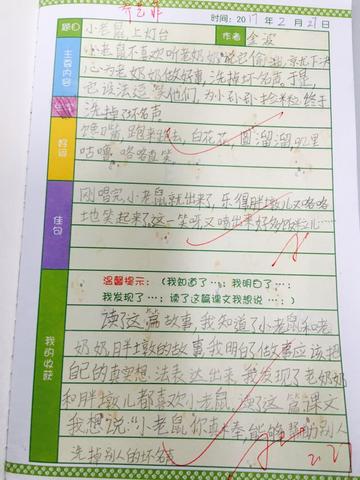 时间：2017年2月21日
题目 小老鼠上灯台 作者 金波
主要内容
小老鼠不喜欢听老奶奶说它偷油，就下决
心为老奶奶做好事，洗掉坏名声。于是，
它设法逗笑他们，为小孙孙捡米粒，终于
洗掉了坏名声
好词
馋嘴，跑来跑去，白花花，圆溜溜，叽里
咕噜，咯咯直笑
佳句
刚唱完，小老鼠就出来了，乐得胖墩儿又咯咯
地笑起来了，这一笑呀又喷出好多饭粒儿……
我的收获
温馨提示：（我知道了…；我明白了…；
我发现了…；读了这篇课文我想说…；）
读了这篇故事，我知道了小老鼠和老
奶奶胖墩的故事我明白了做事应该把
自己的真实想法表达出来，我发现了老奶奶
和胖墩儿都喜欢小老鼠，读了这篇课文
我想说：“小老鼠你真棒能够帮助别人
洗掉别人的坏名声
2.21